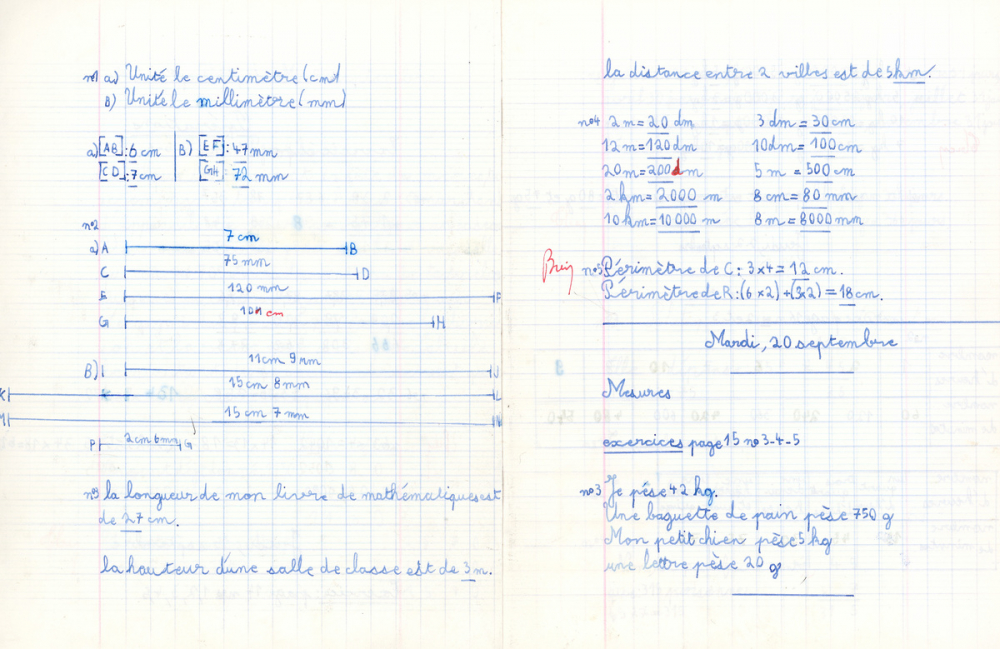 n°1 a) Unité le centimètre (cm)
B) Unité le millimètre (mm)
a) [AB]: 6 cm B) [EF]: 47 mm
[CD]: 7 cm [GH]: 72 mm
n°2
a) A 7 cm B
C 75 mm D
E 120 mm F
G cm H
B) I 11 cm 9 mm J
K 15 cm 8 mm L
M 15 cm 7 mm N
P 2 cm 6 mm G
n°3 la longueur de mon livre de mathématiques est
de 27 cm.
la hauteur d'une salle de classe est de 3 m.
la distance entre 2 villes est de 5 km.
n°4 2 m = 20 dm 3 dm = 30 cm
12 m = 120 dm 10 dm = 100 cm
20 m = 200 dm 5 m = 500 cm
2 km = 2000 m 8 cm = 80 mm
10 km = 10 000 m 8 m = 8000 mm
Bien n°5 Périmètre de C : 3 x 4 = 12 cm.
Périmètre de R : (6 x 2) + (3x2) = 18 cm.
Mardi, 20 septembre
Mesures
exercices page 15 n° 3-4-5
n°3 Je pése 42 kg.
Une baguette de pain pèse 750 g
Mon petit chien pèse 5 kg
une lettre pèse 20 g